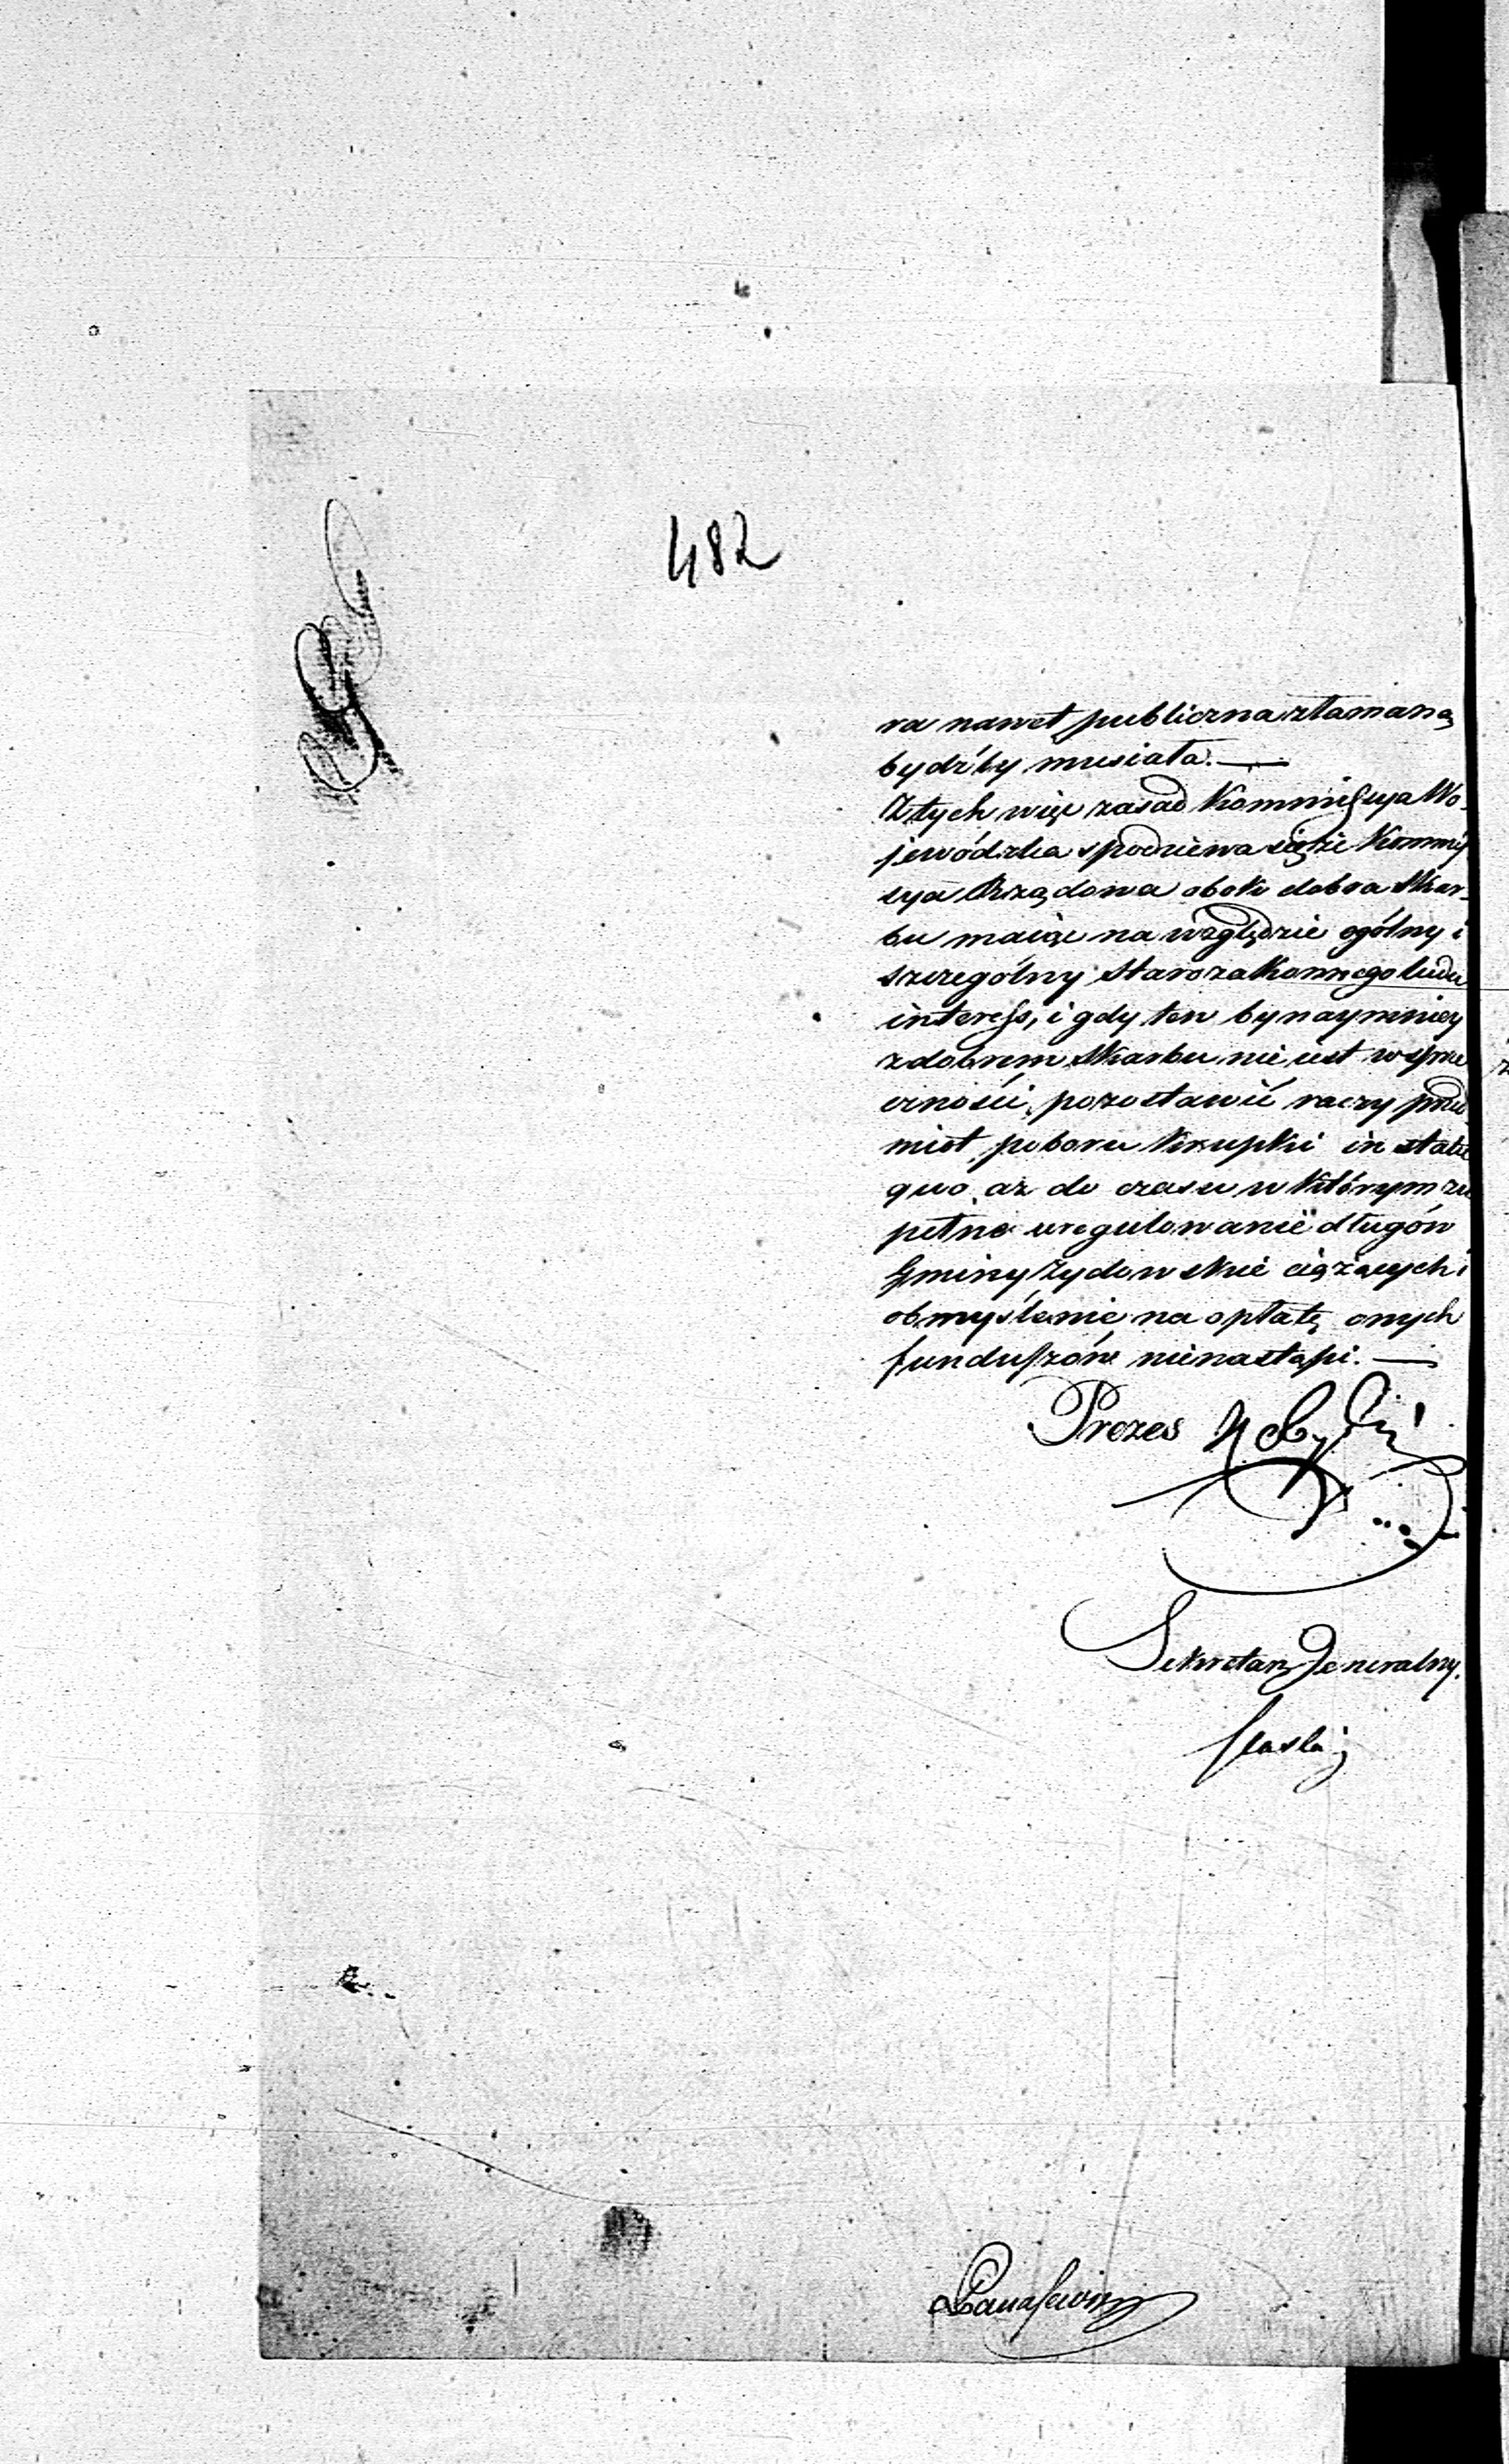 482
ra nawet publiczna złamaną
bydźby musiała. —
Z tych więc zasad Kommissya Wo-
jewódzka spodziewa się że Kommis
sya Rządowa obok dobra Skar-
bu maiąc na względzie ogólny i
szczególny Starozakonnego ludu
interess, i gdy ten bynaymniey
z dobrem Skarbu nie iest w sprze
czności, pozostawić raczy przed
miot poboru Krupki in statu
quo aż do czasu w którym zu
pełne uregulowanie długów
Gminy Żydowskie ciążących i
obmyślenie na opłatę onych
funduszów nienastąpi. —
Prezes
Sekretarz Generalny.